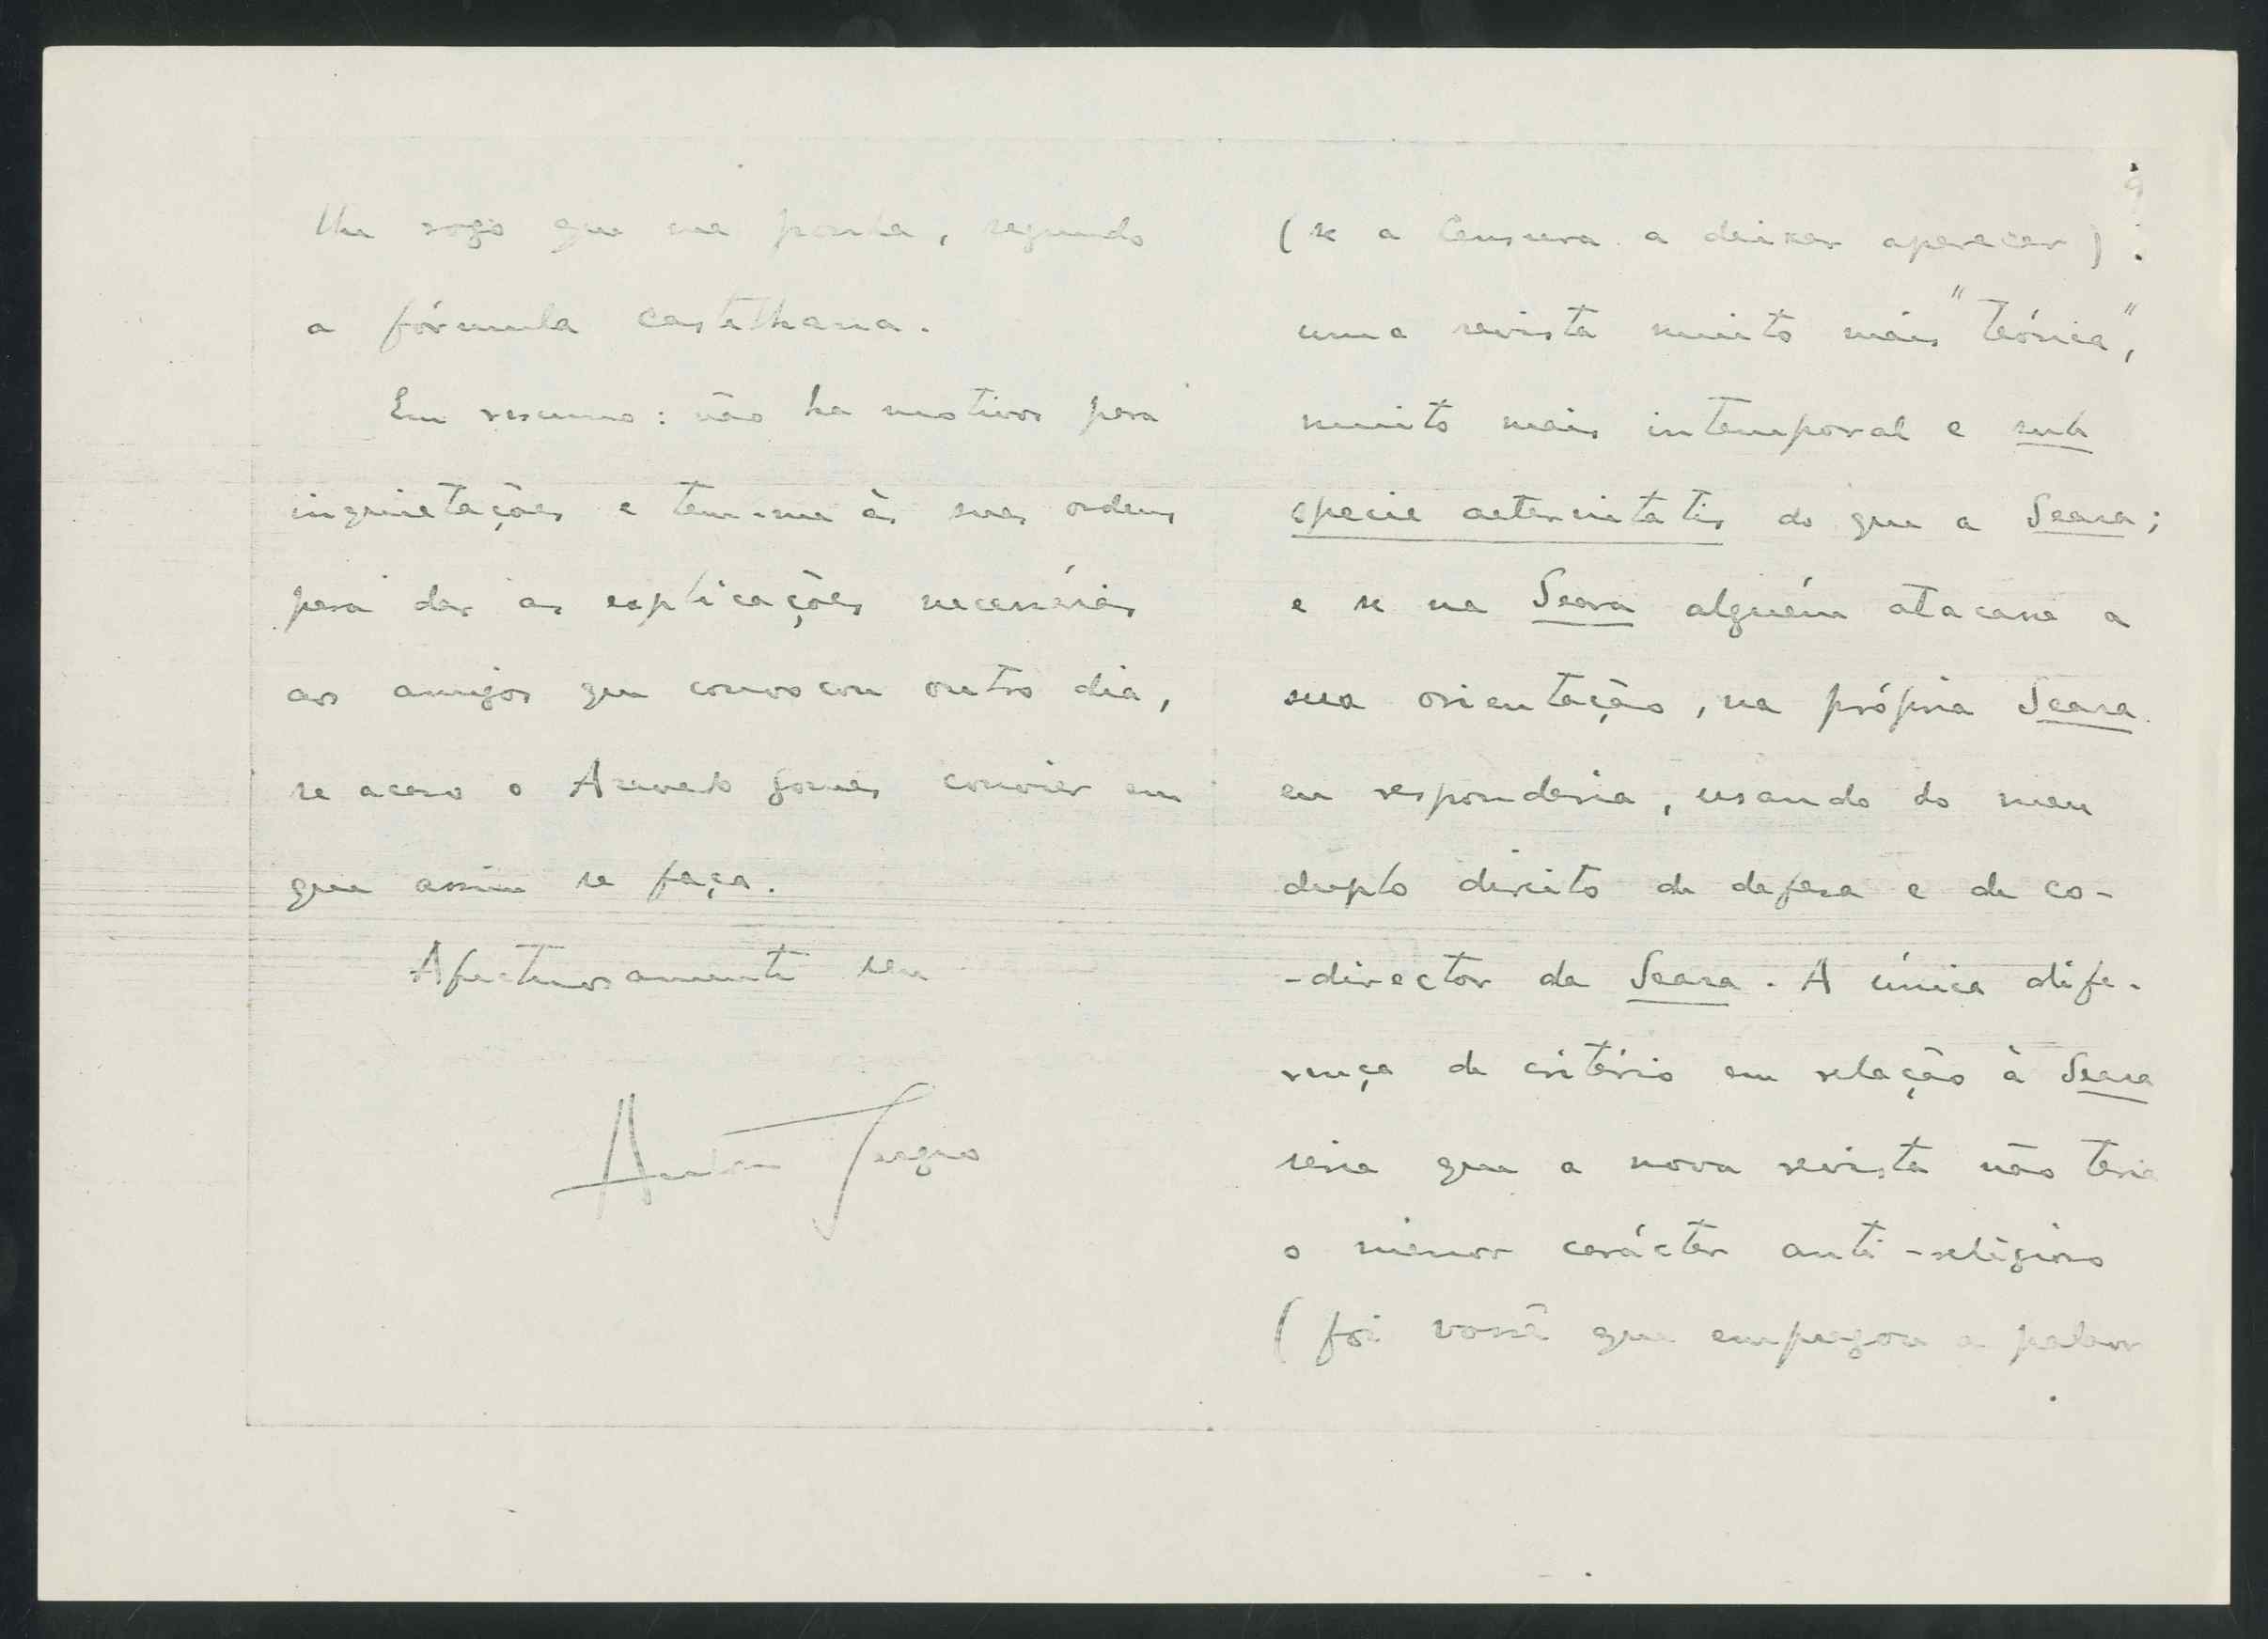 lhe rogo que me ponha, segundo
a fórmula castelhana.
Em resumo: não ha motivos para
inquietações e tem-me às suas ordens
para dar as explicações necessárias
aos amigos que convocou outro dia,
se acaso o Azevedo Gomes convier em
que assim se faça.
Afectuosamente seu
António Sergio
(se a Censura a deixar aparecer)
uma revista muito mais "teórica",
muito mais intemporal e sub
specie aeternitatis do que a Seara;
e se na Seara alguém atacasse a
sua orientação, na própria Seara
eu responderia, usando do meu
duplo direito de defesa e de co-
-director da Seara. A única dife-
rença de critério em relação à Seara
seria que a nova revista não teria
o menor carácter anti-religioso
(foi você que empregou a palavr